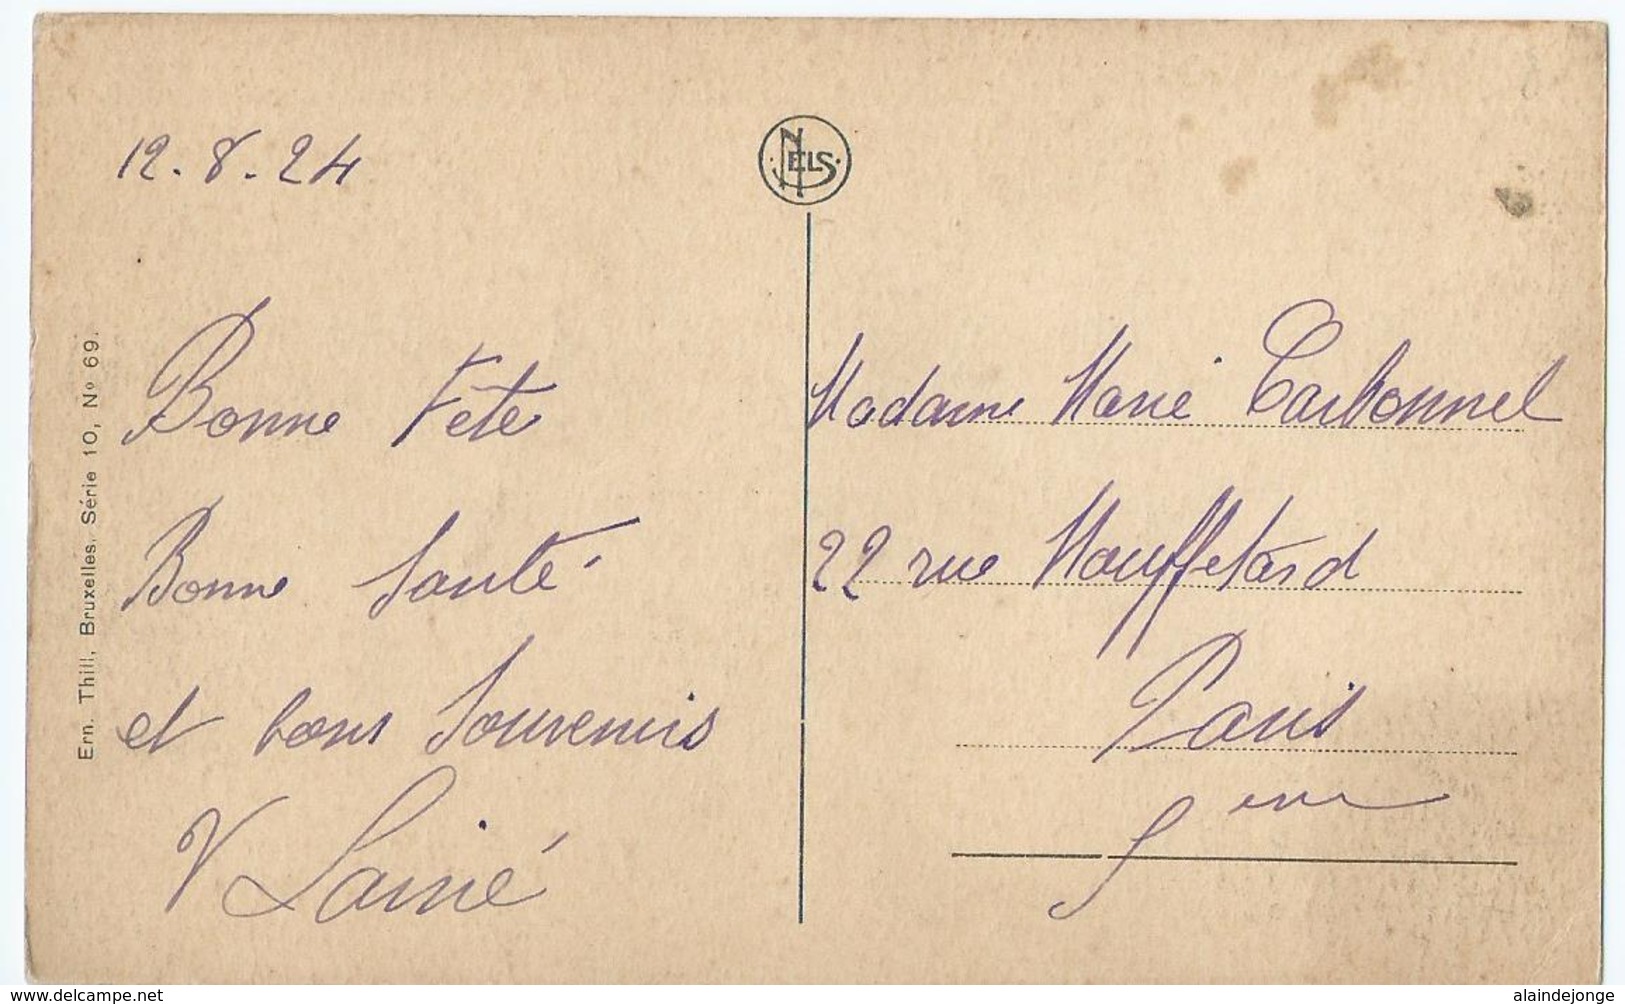 12.8.24
Bonne Fete
Bonne Santé
et bons Souvenirs
V Lainé
NELS
Madame Marie Carbonnel
22 rue Mouffetard
Paris
5eme
Ern. Thill, Bruxelles. Série 10, No 69.
www.delcampe.net
alaindejonge